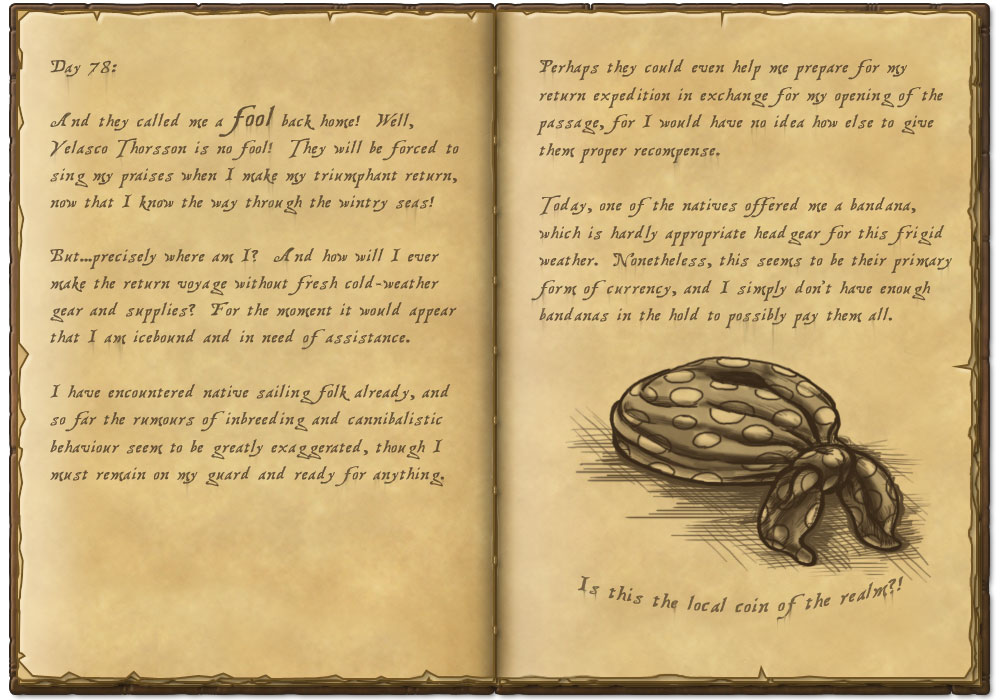 Day 78:
And they called me a fool back home! Well,
Velasco Thorsson is no fool! They will be forced to
sing my praises when I make my triumphant return,
now that I know the way through the wintry seas!
But...precisely where am I? And how will I ever
make the return voyage without fresh cold-weather
gear and supplies? For the moment it would appear
that I am icebound and in need of assistance.
I have encountered native sailing folk already, and
so far the rumours of inbreeding and cannibalistic
behaviour seem to be greatly exaggerated, though I
must remain on my guard and ready for anything.
Perhaps they could even help me prepare for my
return expedition in exchange for my opening of the
passage, for I would have no idea how else to give
them proper recompense.
Today, one of the natives offered me a bandana,
which is hardly appropriate headgear for this frigid
weather. Nonetheless, this seems to be their primary
form of currency, and I simply don't have enough
bandanas in the hold to possibly pay them all.
Is this the local coin of the realm?!